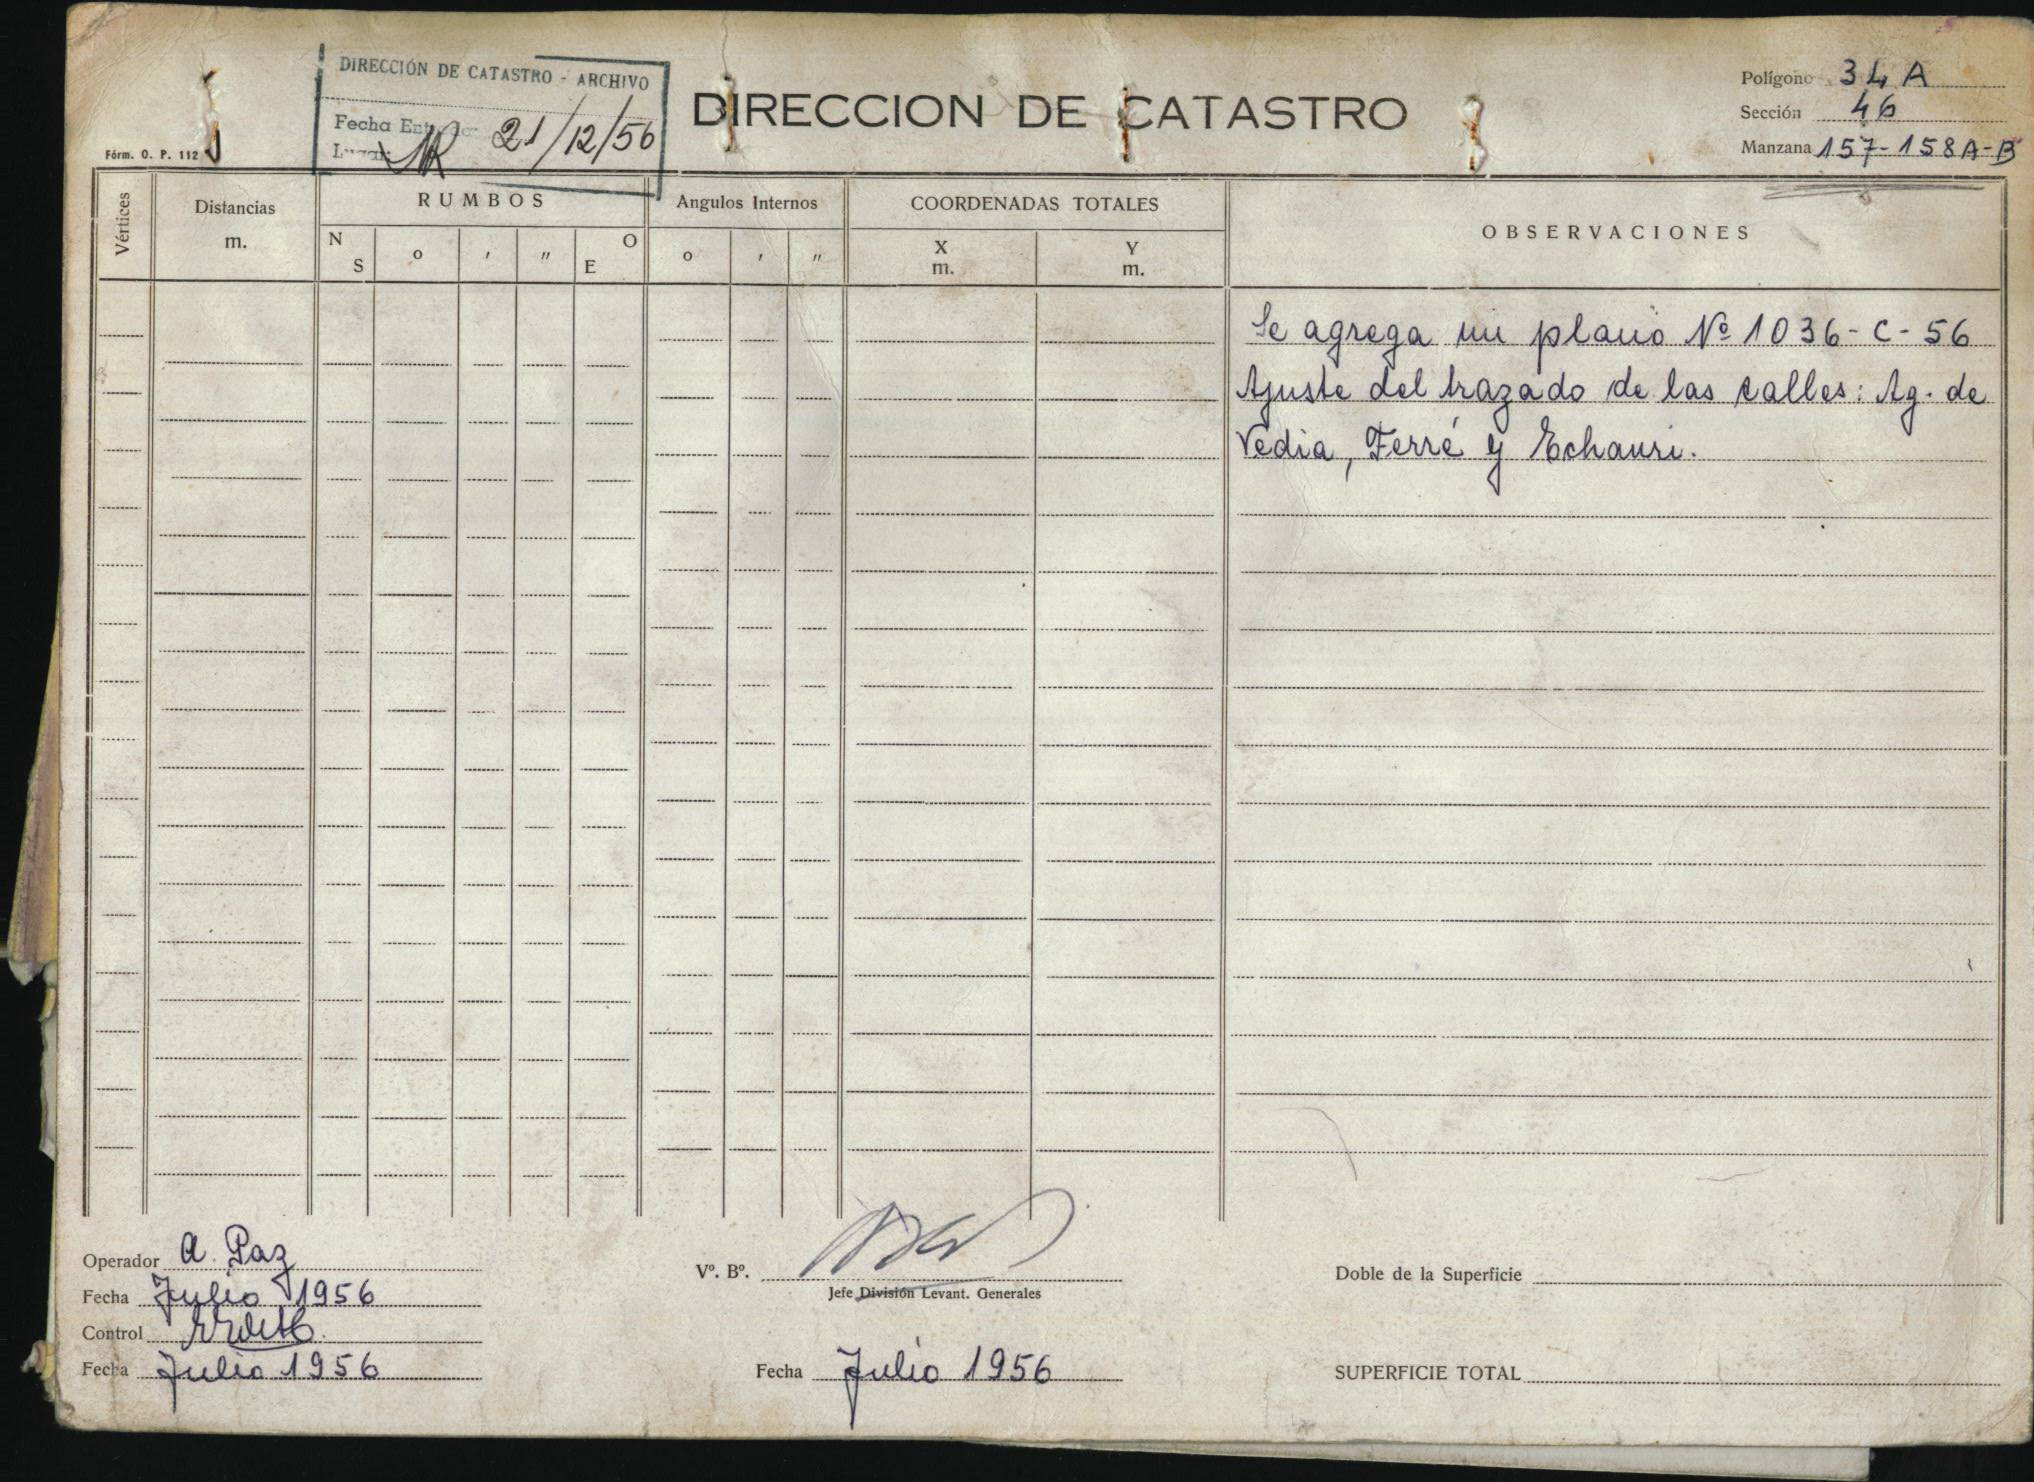 DIRECCIÓN DE CATASTRO - ARCHIVO
Fecha 21/12/56
Fórm. O. P. 112
DIRECCION DE CATASTRO
Polígono 34 A
Sección 46
Manzana 157-158A-B
Vértices
Distancias
m.
RUMBOS
N
S
o
'
"
O
E
Angulos Internos
o
'
"
COORDENADAS TOTALES
X
m.
Y
m.
OBSERVACIONES
Se agrega un plano Nº 1036-C-56
Ajuste del trazado de las calles: Ag. de
Vedia, Ferré y Echauri.
Operador A. Paz
Fecha Julio 1956
Control
Fecha Julio 1956
Vº. Bº.
Jefe División Levant. Generales
Fecha Julio 1956
Doble de la Superficie
SUPERFICIE TOTAL